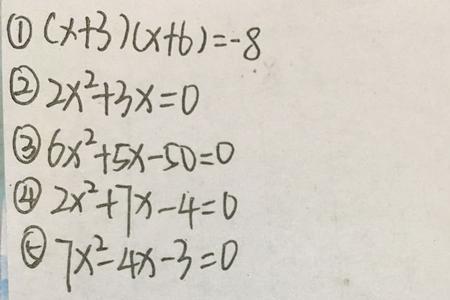 ① (x+3)(x+6)=-8
② 2x²+3x=0
③ 6x²+5x-50=0
④ 2x²+7x-4=0
⑤ 7x²-4x-3=0